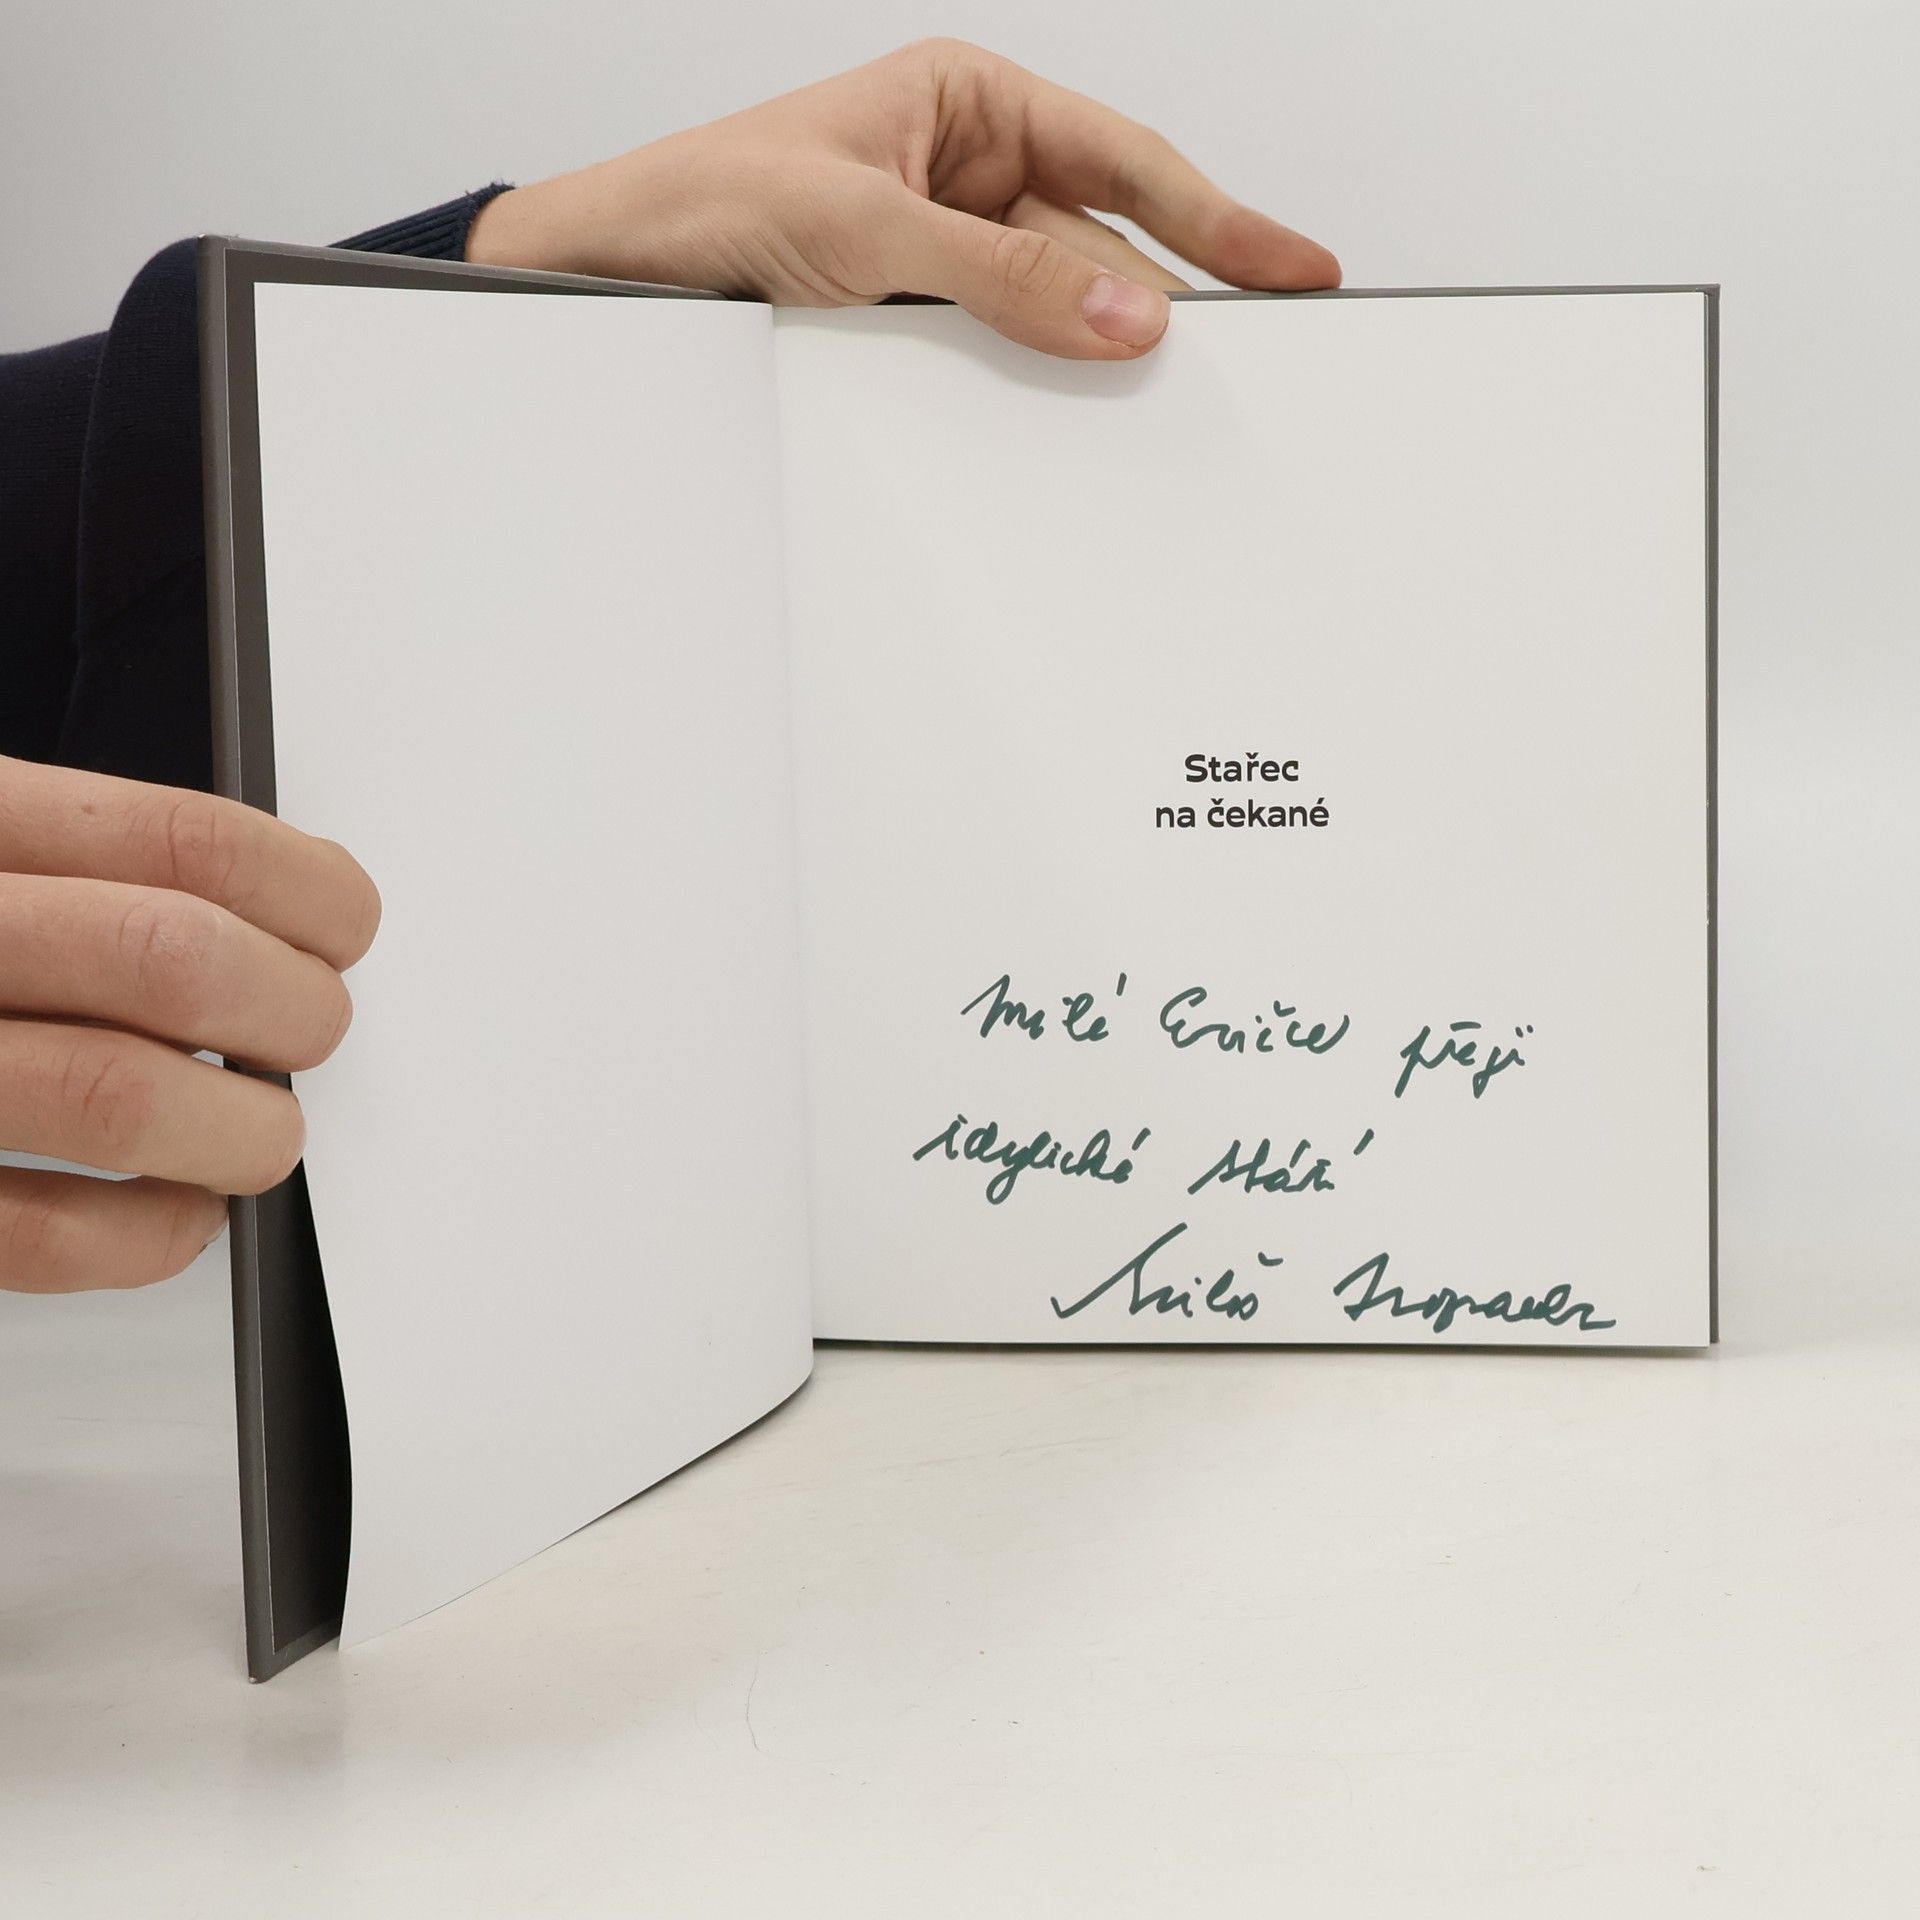 Stařec
na čekané
Milé Evičce přeji
idylické stáří
Miloš